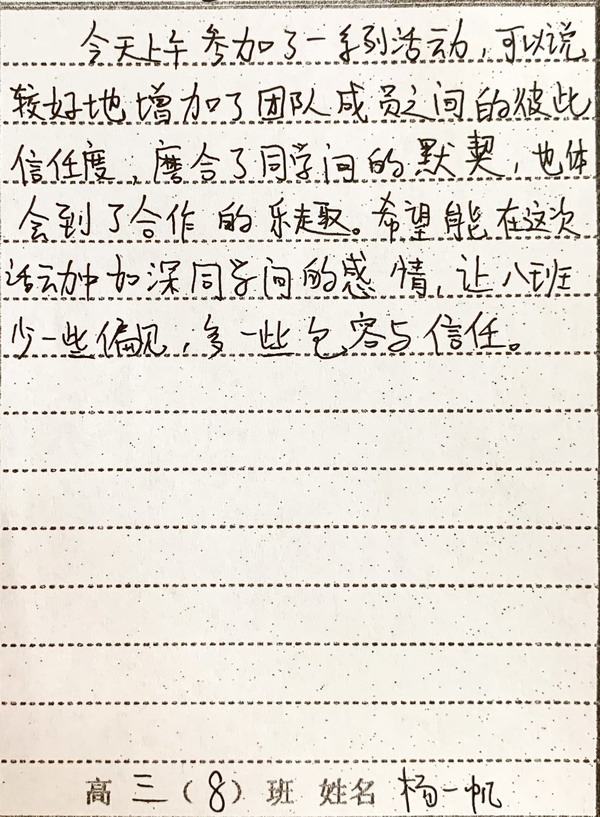 今天上午参加了一系列活动，可以说
较好地增加了团队成员之间的彼此
信任度，磨合了同学间的默契，也体
会到了合作的乐趣。希望能在这次
活动中加深同学间的感情，让八班
少一些偏见，多一些包容与信任。
高三（8）班 姓名 杨一帆